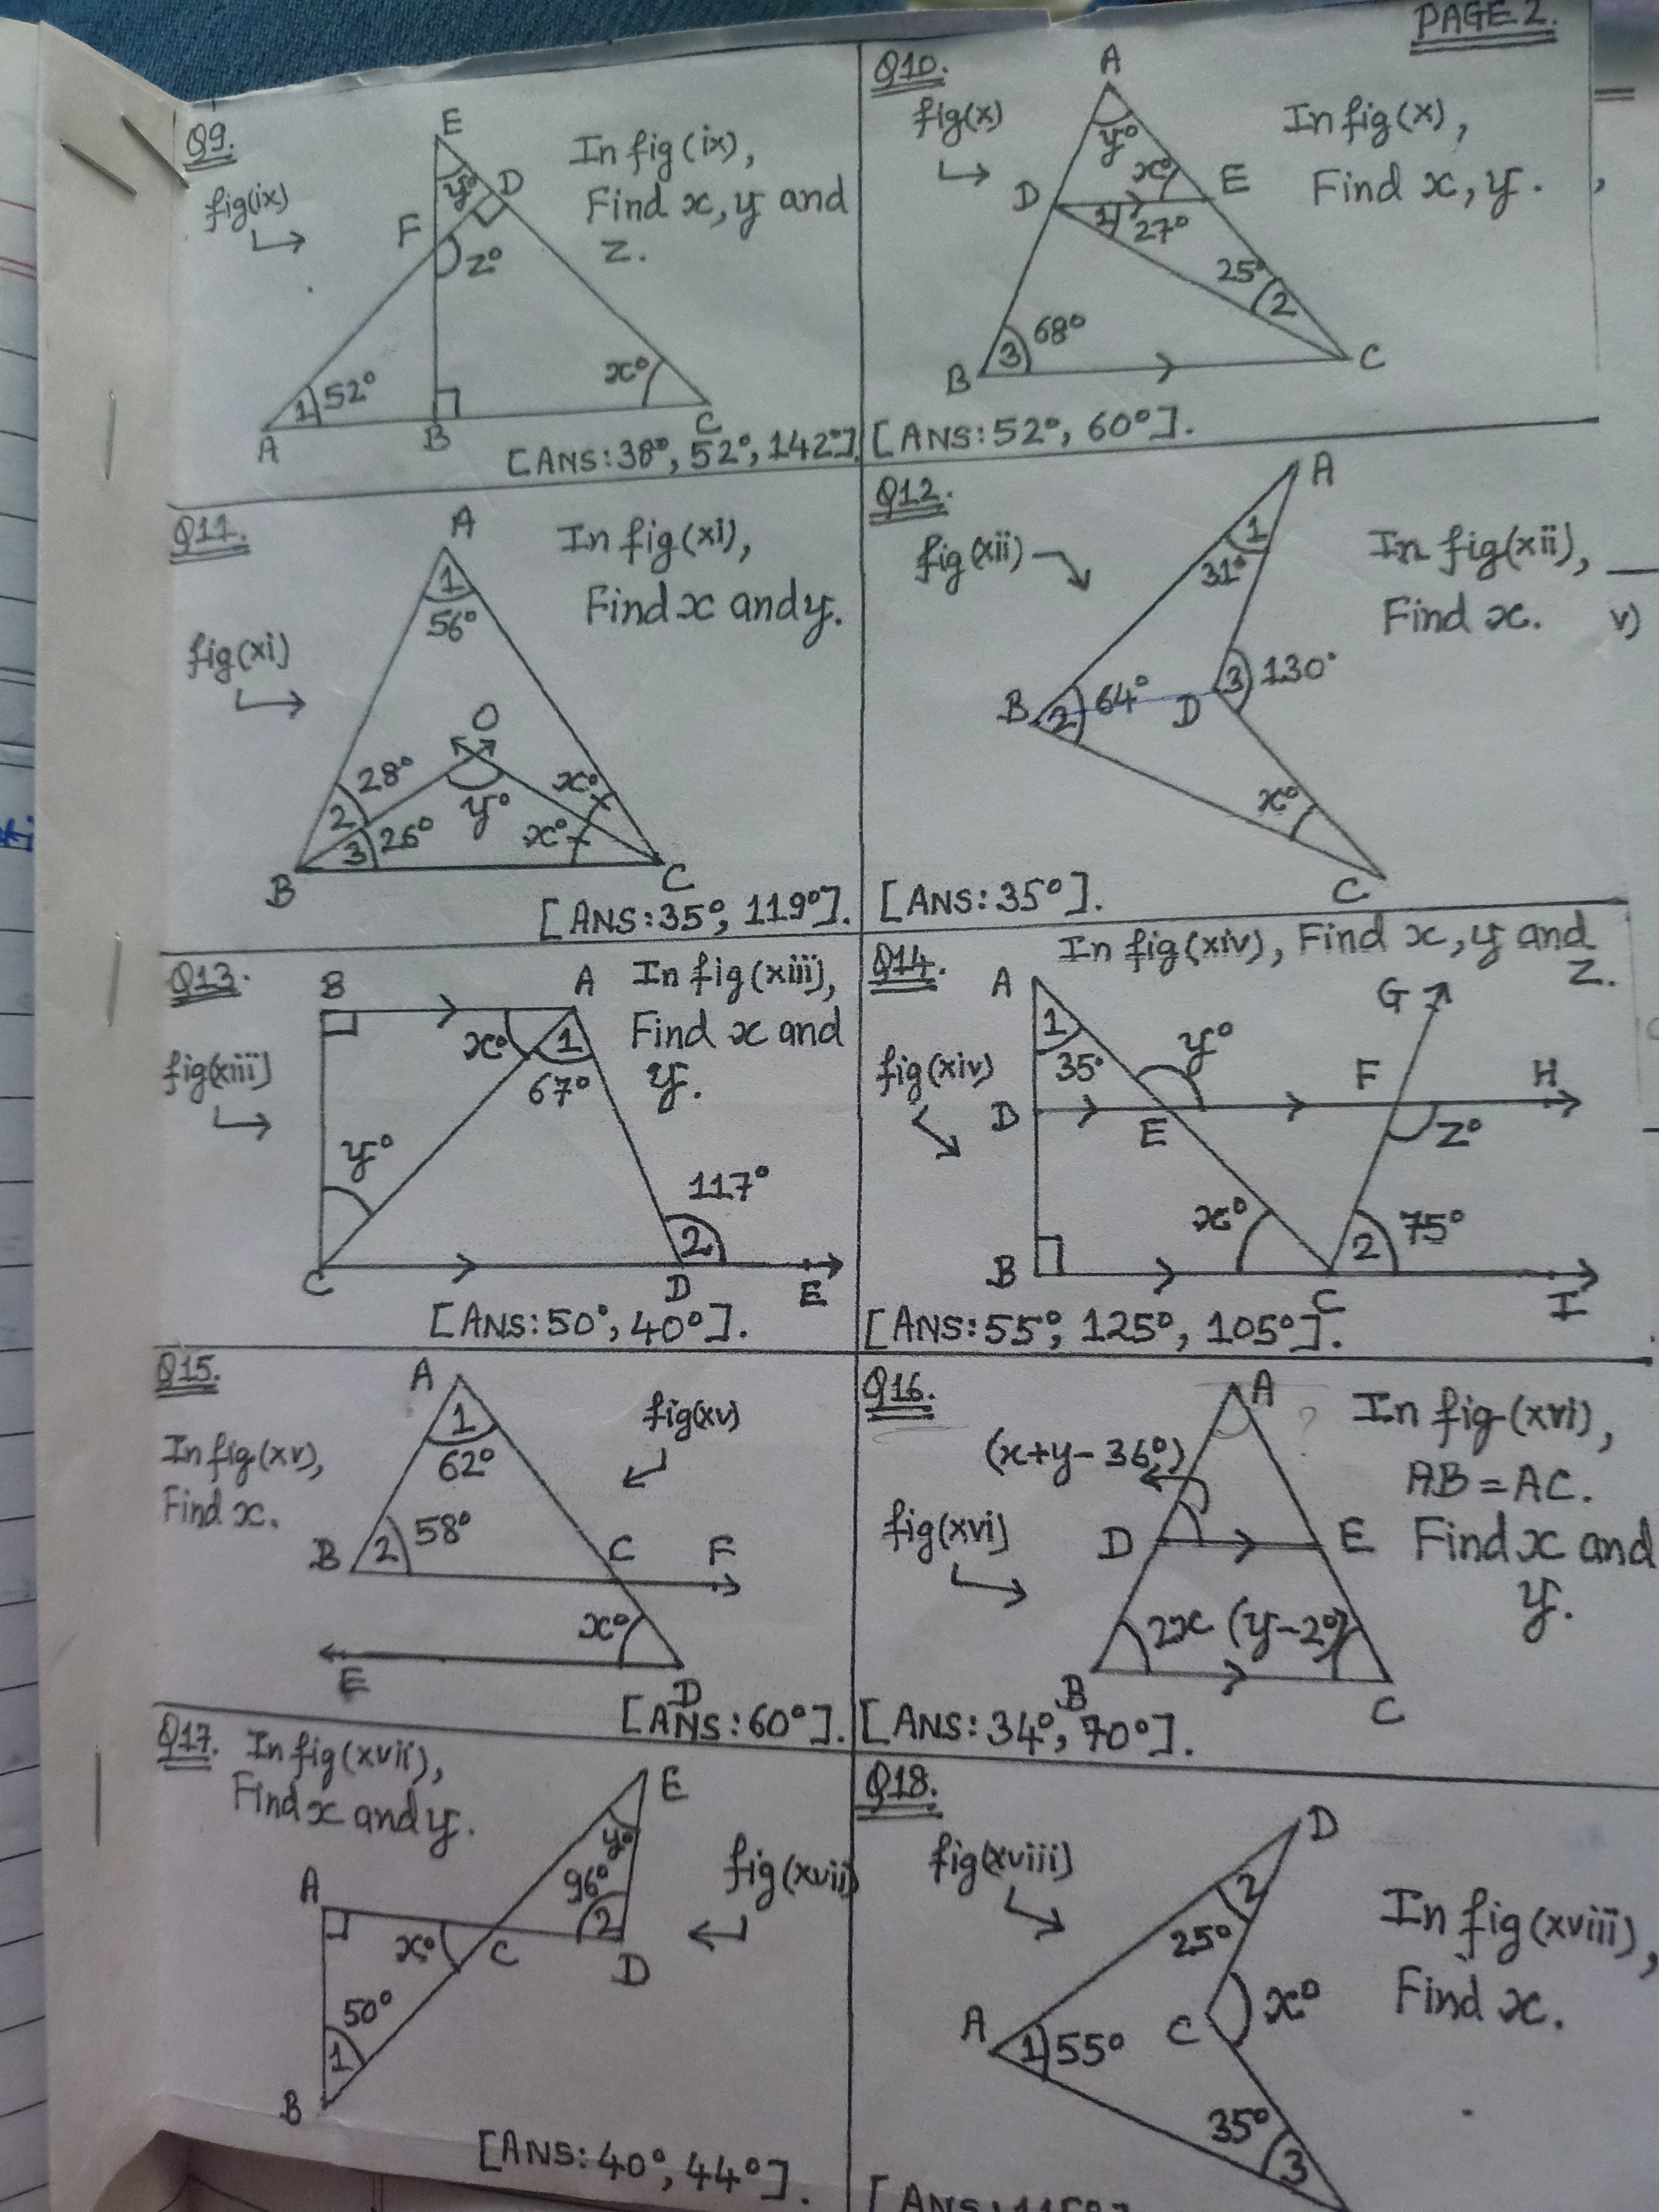 PAGE 2.
Q9.
fig(ix)
In fig(ix),
Find x, y and
z.
E
y°
D
F
z°
1 52°
x°
A
B
C
[ANS: 38°, 52°, 142°].
Q10.
fig(x)
In fig(x),
Find x, y.
A
y°
x°
D
E
1 27°
25°
2
3 68°
B
C
[ANS: 52°, 60°].
Q11.
fig(xi)
In fig(xi),
Find x and y.
A
1
56°
O
28°
2
y°
x°
3 26°
x°
B
C
[ANS: 35°, 119°].
Q12.
fig(xii)
In fig(xii),
Find x.
v)
A
1
31°
B
2 64°
D
3 130°
x°
C
[ANS: 35°].
Q13.
fig(xiii)
In fig(xiii),
Find x and
y.
B
A
x°
1
67°
y°
117°
2
C
D
E
[ANS: 50°, 40°].
Q14.
In fig(xiv), Find x, y and
z.
fig(xiv)
A
1
35°
y°
G
D
E
F
H
z°
x°
2 75°
B
C
I
[ANS: 55°, 125°, 105°].
Q15.
In fig(xv),
Find x.
fig(xv)
A
1
62°
B
2 58°
C
F
x°
E
D
[ANS: 60°].
Q16.
fig(xvi)
In fig(xvi),
AB = AC.
Find x and
y.
A
?
(x+y-36°)
D
E
2x (y-2°)
B
C
[ANS: 34°, 70°].
Q17. In fig(xvii),
Find x and y.
fig(xvii)
E
y°
96°
2
A
x°
C
D
50°
1
B
[ANS: 40°, 44°].
Q18.
fig(xviii)
In fig(xviii),
Find x.
D
2
25°
A
1 55°
C
x°
35°
3
[ANS: 115°]